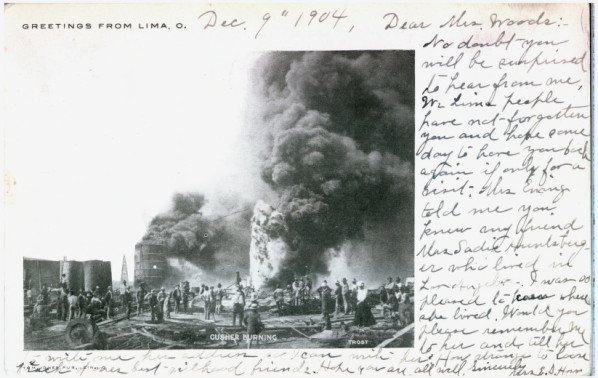 GREETINGS FROM LIMA, O.
Dec. 9" 1904,
Dear Mrs. Woods:-
No doubt you
will be surprised
to hear from me,
We Lima people
have not forgotten
you and hope some
day to have you back
again if only for a
visit. Mrs
told me you
knew my friend
Mrs. Sadie
er who lived in
I was so
pleased to where
she lived. Would you
please remember me
to her and tell her
GUSHER BURNING
TROST
me her address so I can write her. How strange to lose
our best friends. Hope you are all well. Sincerely
Mrs. S. D.